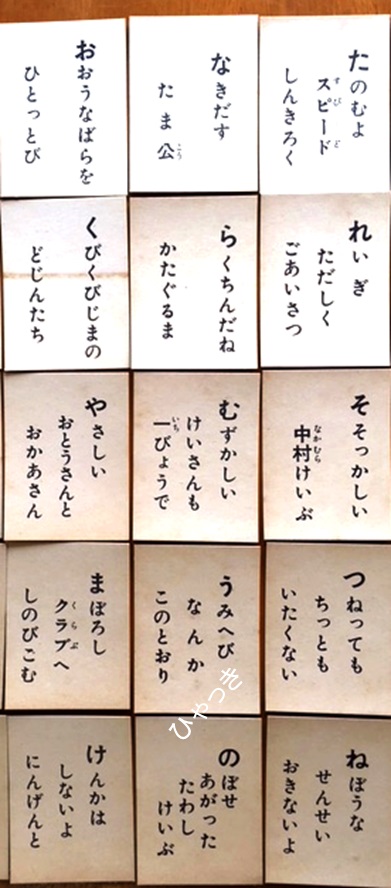 たのむよ
スピード
すぴど
しんきろく
なきだす
たま公
こう
おおうなばらを
ひとっとび
れいぎ
ただしく
ごあいさつ
らくちんだね
かたぐるま
くびくびじまの
どじんたち
そそっかしい
中村けいぶ
なかむら
むずかしい
けいさんも
一びょうで
いち
やさしい
おとうさんと
おかあさん
つねっても
ちっとも
いたくない
うみへび
なんか
このとおり
まぼろし
クラブへ
くらぶ
しのびこむ
ねぼうな
せんせい
おきないよ
のぼせ
あがった
たわし
けいぶ
けんかは
しないよ
にんげんと
ひゃつき